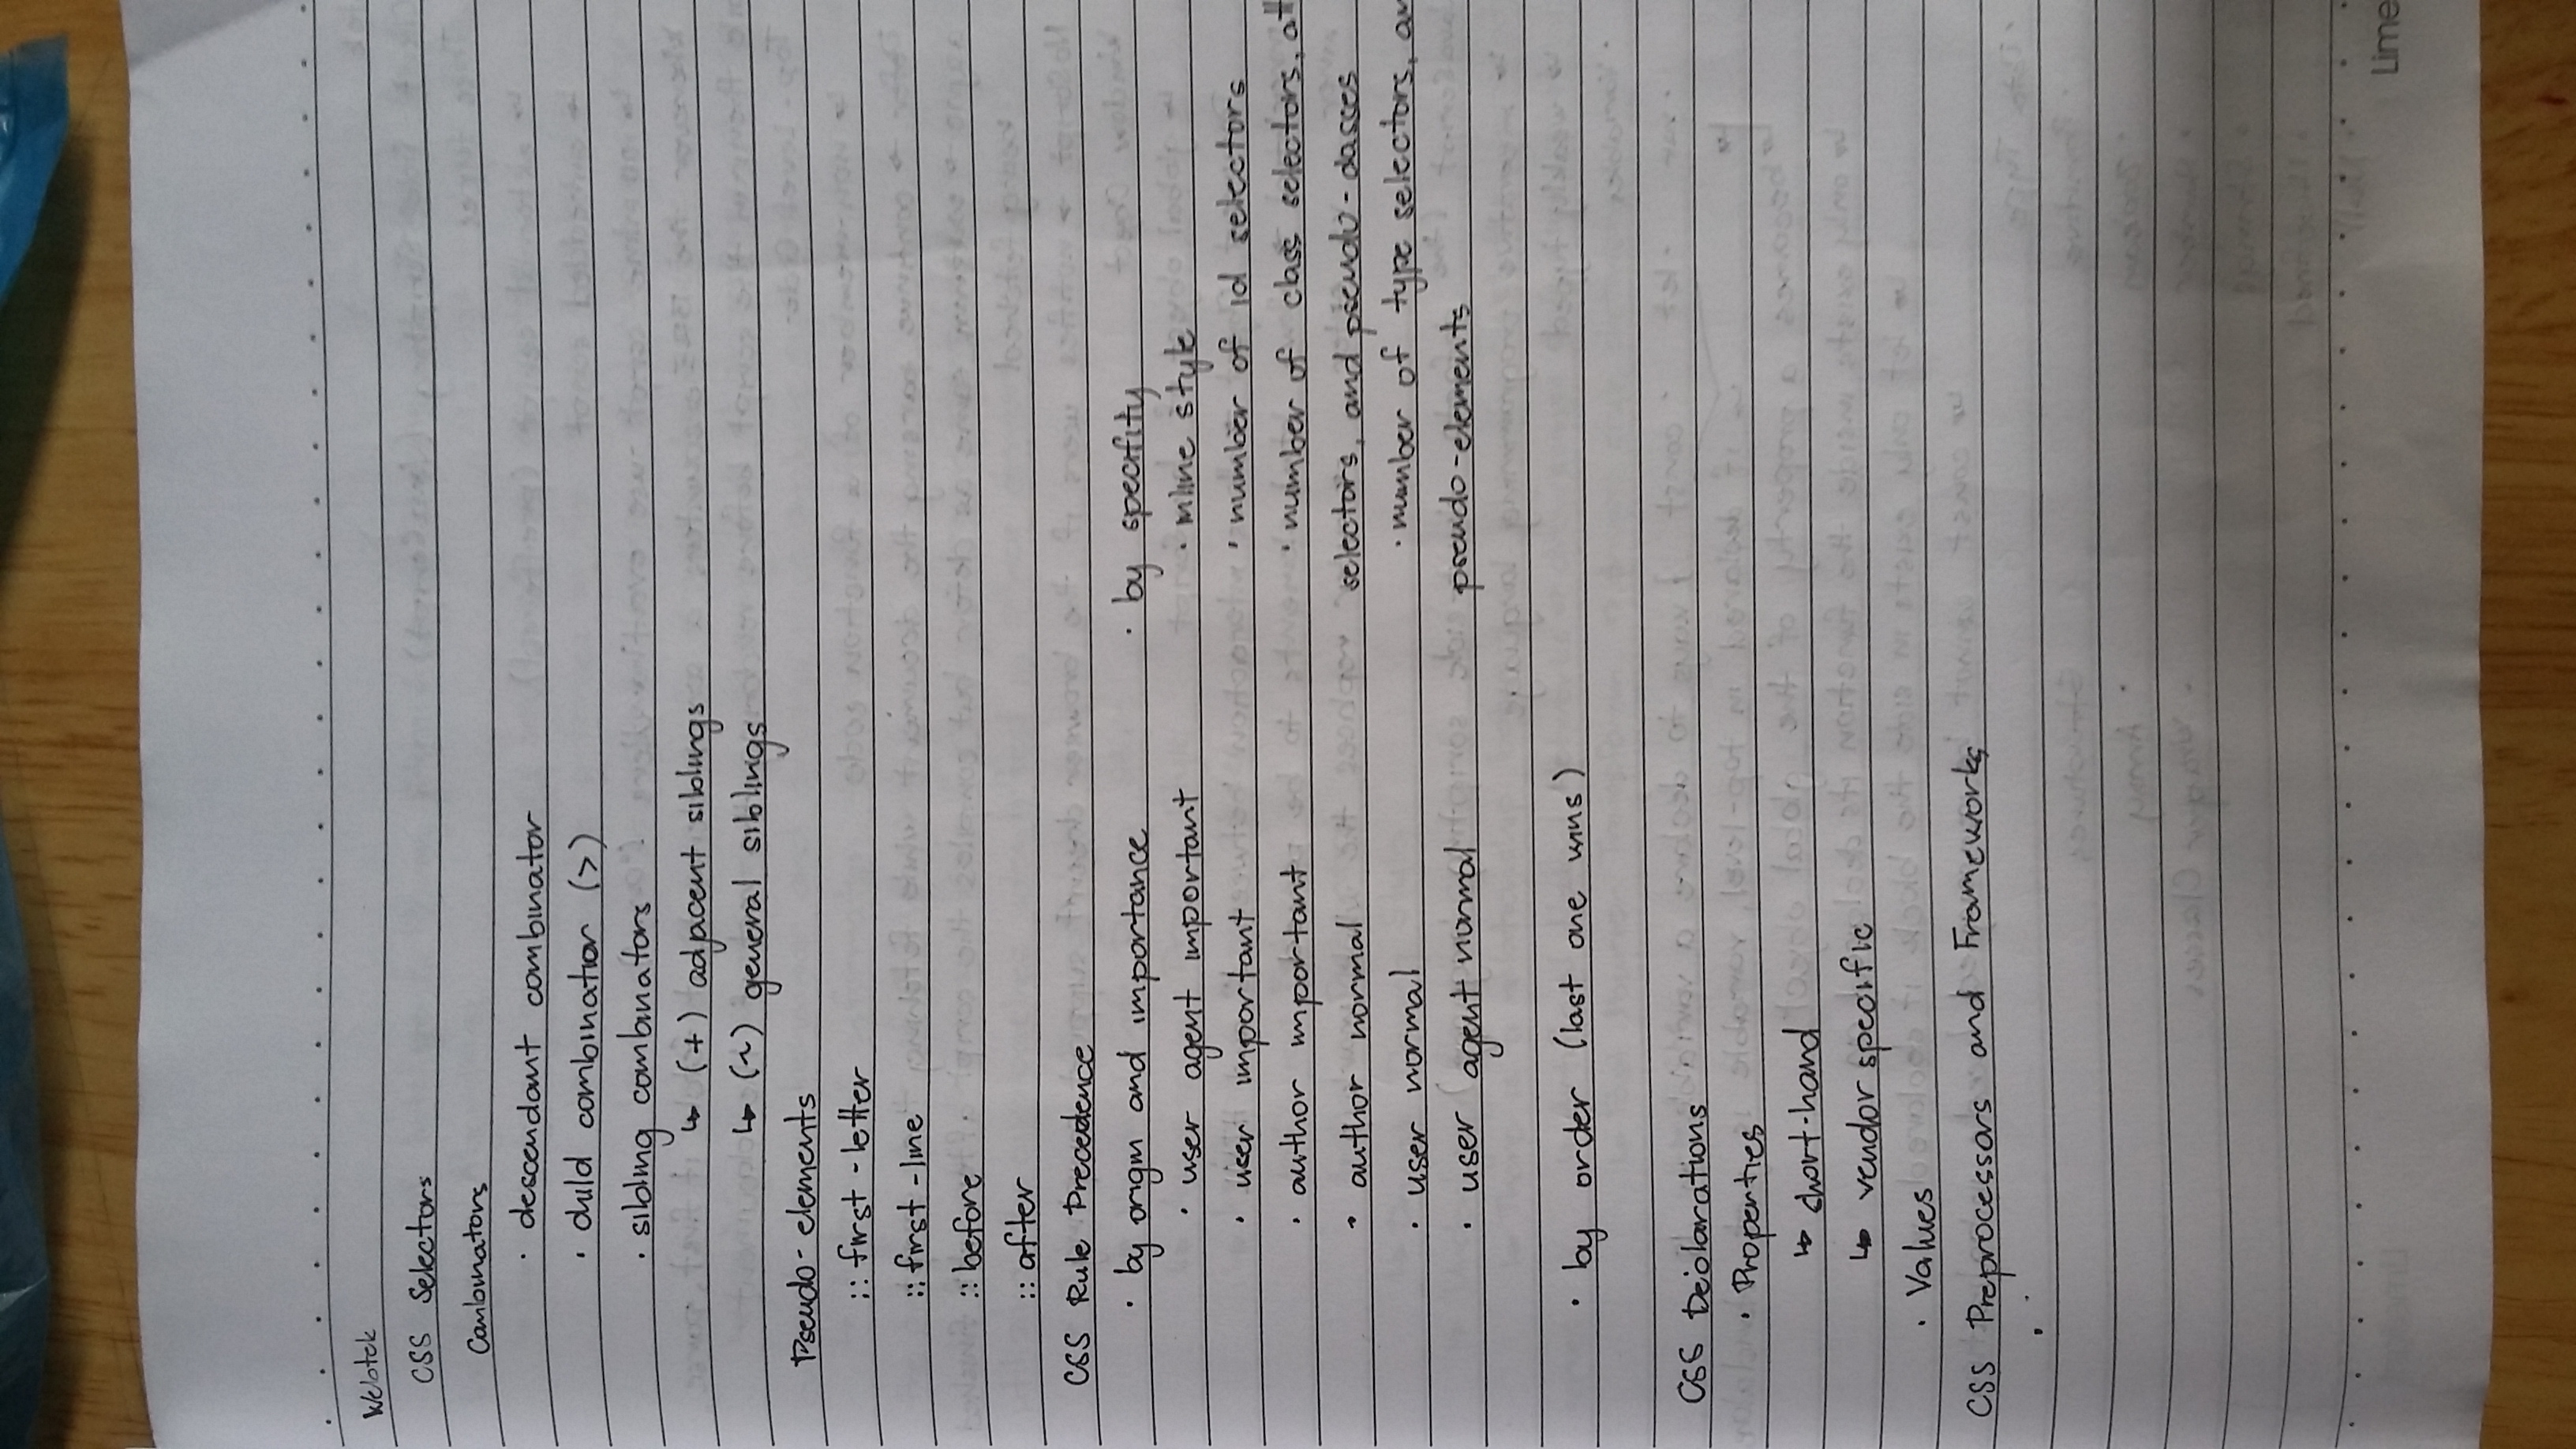 Webtek
CSS Selectors
Combinators
· descendant combinator
· child combinator (>)
· sibling combinators
↳ (+) adjacent siblings
↳ (~) general siblings
Pseudo-elements
::first-letter
::first-line
::before
::after
CSS Rule Precedence
· by origin and importance
· user agent important
· user important
· author important
· author normal
· user normal
· user agent normal
· by specifity
· inline style
· number of id selectors
· number of class selectors, att
selectors, and pseudo-classes
· number of type selectors, an
pseudo-elements
· by order (last one wins)
CSS Declarations
· Properties
↳ short-hand
↳ vendor specific
· Values
CSS Preprocessors and Frameworks
·
Lime